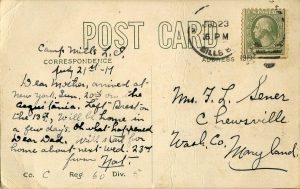 POST CARD
CORRESPONDENCE
ADDRESS
JUL 23
PM
MILLS
Camp Mills L.I.
July 21st-19
Dear Mother, arrived at
New York, Sun. 20th on the
Aquitania. Left Brest on
the 13th, Will be home in
a few days. Oh what happened
Dear Dad, will start for
home about next wed. 23d
from Nat.
Co. C Reg. 60 Div. 5
Mrs. T. L. Sener
Chewsville
Wash. Co.
Maryland.